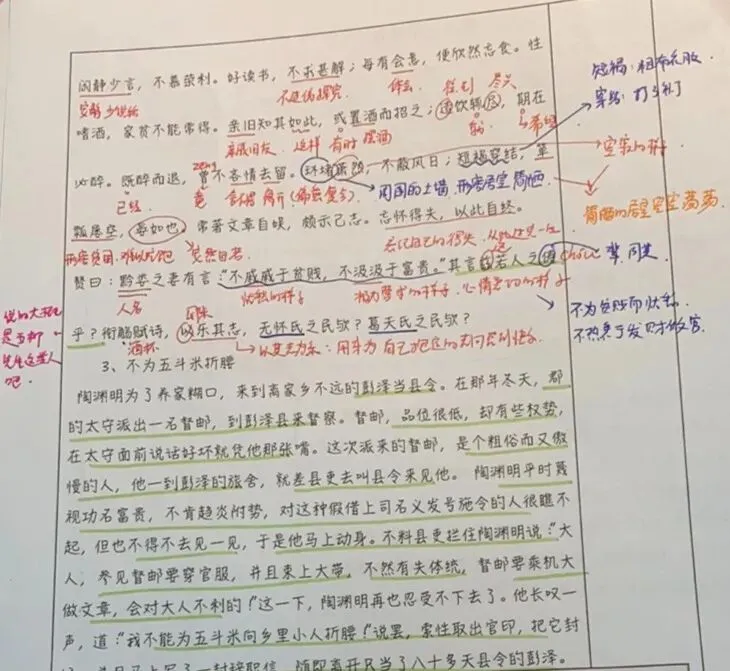 闲静少言，不慕荣利。好读书，不求甚解；每有会意，便欣然忘食。性
安静 少说话 不过 体会 尽兴
短褐：粗布衣服
穿结：打了补丁
嗜酒，家贫不能常得。亲旧知其如此，或置酒而招之；造饮辄尽，期在
亲戚旧友 这样 有时 摆酒 就 希望
必醉。既醉而退，曾不吝情去留。环堵萧然，不蔽风日；短褐穿结，箪
已经 竟 舍不得 离开
周围的土墙 形容居室简陋
空空的样子
简陋的居室空空荡荡
瓢屡空，晏如也。常著文章自娱，颇示己志。忘怀得失，以此自终。
形容贫困，难以吃饱 安然自若 忘记自己的得失
赞曰：黔娄之妻有言："不戚戚于贫贱，不汲汲于富贵。"其言兹若人之俦
人名 忧愁的样子 极力营求的样子、心情急切的样子 chóu 辈，同类
说的大概是五柳先生这些人吧。
不为贫贱而忧愁
不热衷于发财做官。
乎？衔觞赋诗，以乐其志，无怀氏之民欤？葛天氏之民欤？
酒杯
以其志为乐：用来为自己抱定的志向感到快乐
3、不为五斗米折腰
陶渊明为了养家糊口，来到离家乡不远的彭泽当县令。在那年冬天，郡
的太守派出一名督邮，到彭泽县来督察。督邮，品位很低，却有些权势，
在太守面前说话好坏就凭他那张嘴。这次派来的督邮，是个粗俗而又傲
慢的人，他一到彭泽的旅舍，就差县吏去叫县令来见他。 陶渊明平时蔑
视功名富贵，不肯趋炎附势，对这种假借上司名义发号施令的人很瞧不
起，但也不得不去见一见，于是他马上动身。不料县吏拦住陶渊明说："大
人，参见督邮要穿官服，并且束上大带，不然有失体统，督邮要乘机大
做文章，会对大人不利的！"这一下，陶渊明再也忍受不下去了。他长叹一
声，道："我不能为五斗米向乡里小人折腰！"说罢，索性取出官印，把它封
好，并且马上写了一封辞职信，随即离开只当了八十多天县令的彭泽。